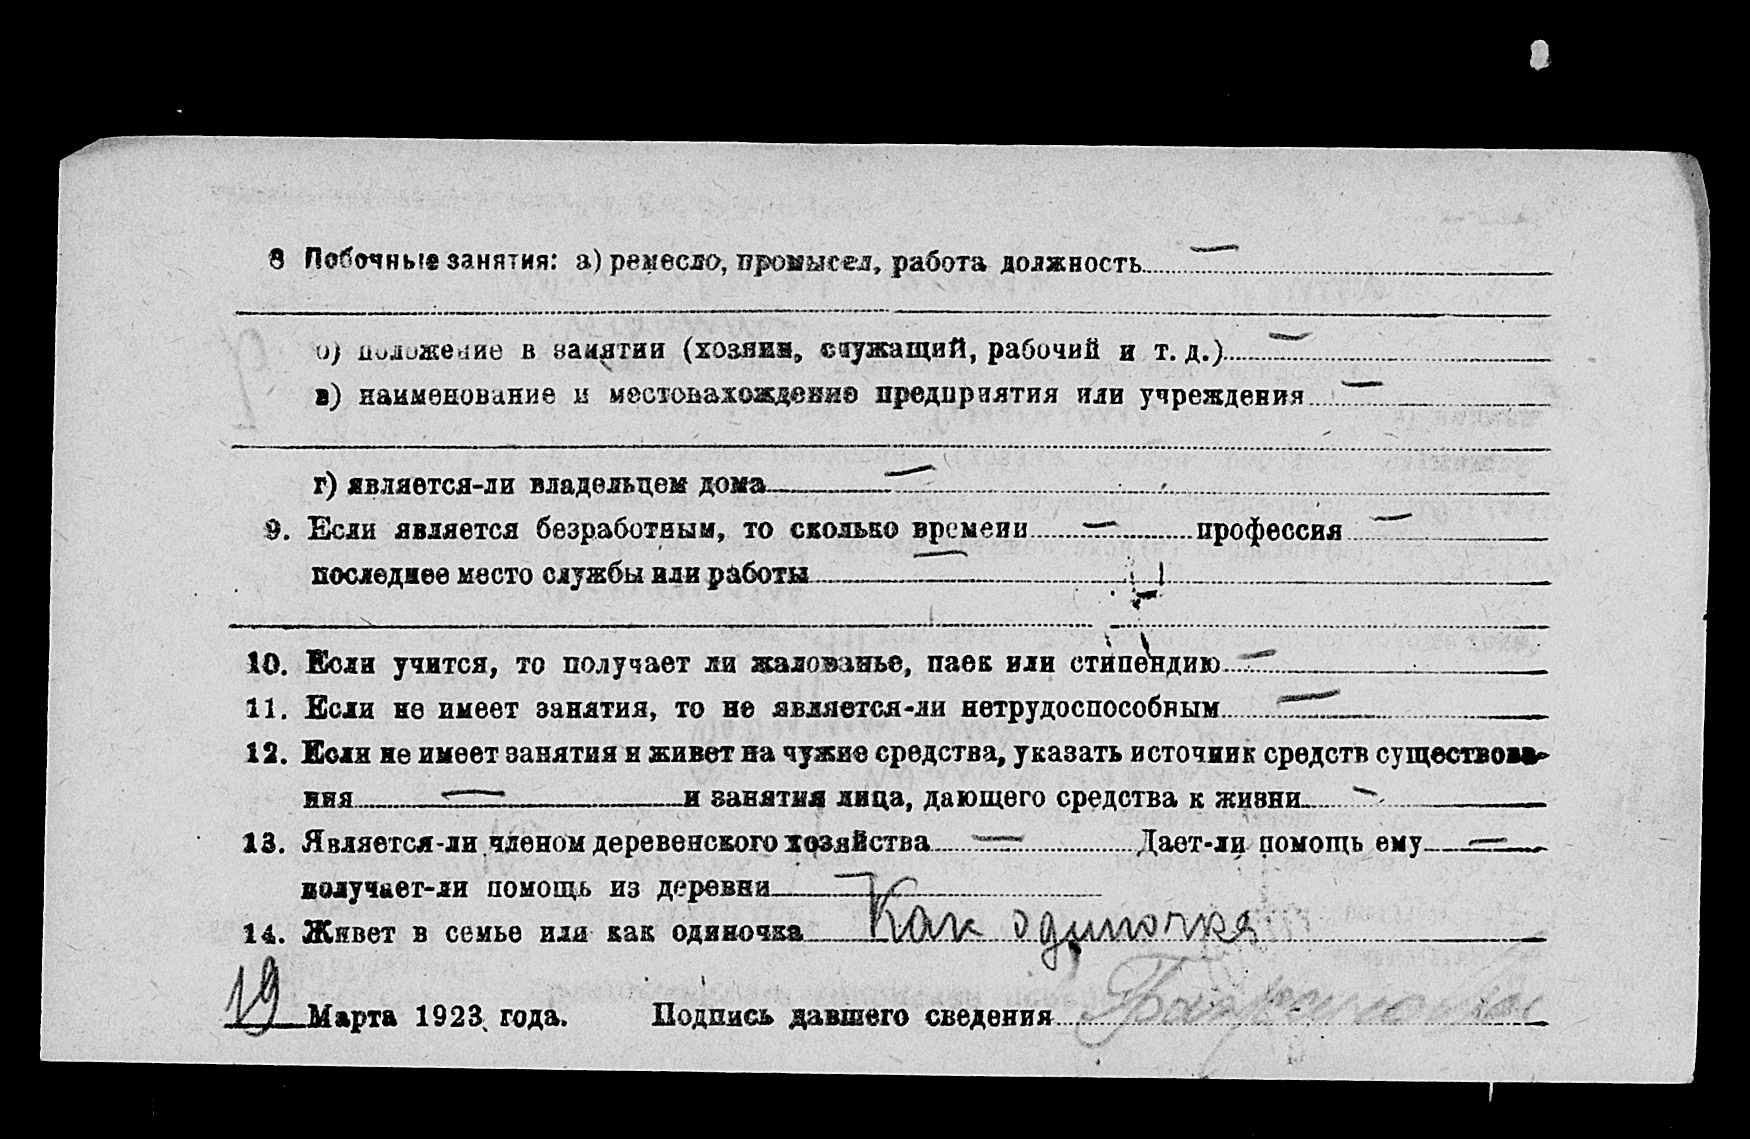 8 Побочные занятия: а) ремесло, промысел, работа должность —
б) положение в занятии (хозяин, служащий, рабочий и т. д.) —
в) наименование и местонахождение предприятия или учреждения —
г) является-ли владельцем дома —
9. Если является безработным, то сколько времени — профессия —
последнее место службы или работы —
10. Если учится, то получает ли жалованье, паек или стипендию —
11. Если не имеет занятия, то не является-ли нетрудоспособным —
12. Если не имеет занятия и живет на чужие средства, указать источник средств существова-
ния — и занятия лица, дающего средства к жизни —
13. Является-ли членом деревенского хозяйства — Дает-ли помощь ему —
получает-ли помощь из деревни —
14. Живет в семье или как одиночка Как одиночка
19 Марта 1923 года. Подпись давшего сведения